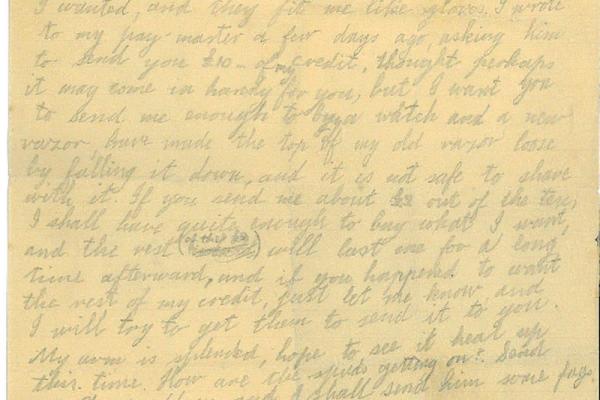 I wanted, and they fit me like gloves. I wrote
to my pay master a few days ago, asking him
to send you £10 of my credit, thought perhaps
it may come in handy for you, but I want you
to send me enough to buy a watch and a new
razor, have made the top of my old razor loose
by falling it down, and it is not safe to shave
with it. If you send me about £2 out of the ten,
I shall have quite enough to buy what I want,
and the rest (of this £2) will last me for a long
time afterward, and if you happened to want
the rest of my credit, just let me know and
I will try to get them to send it to you.
My arm is splended, hope to see it heal up
this time. How are the spuds getting on? Send
and I shall send him some fags.